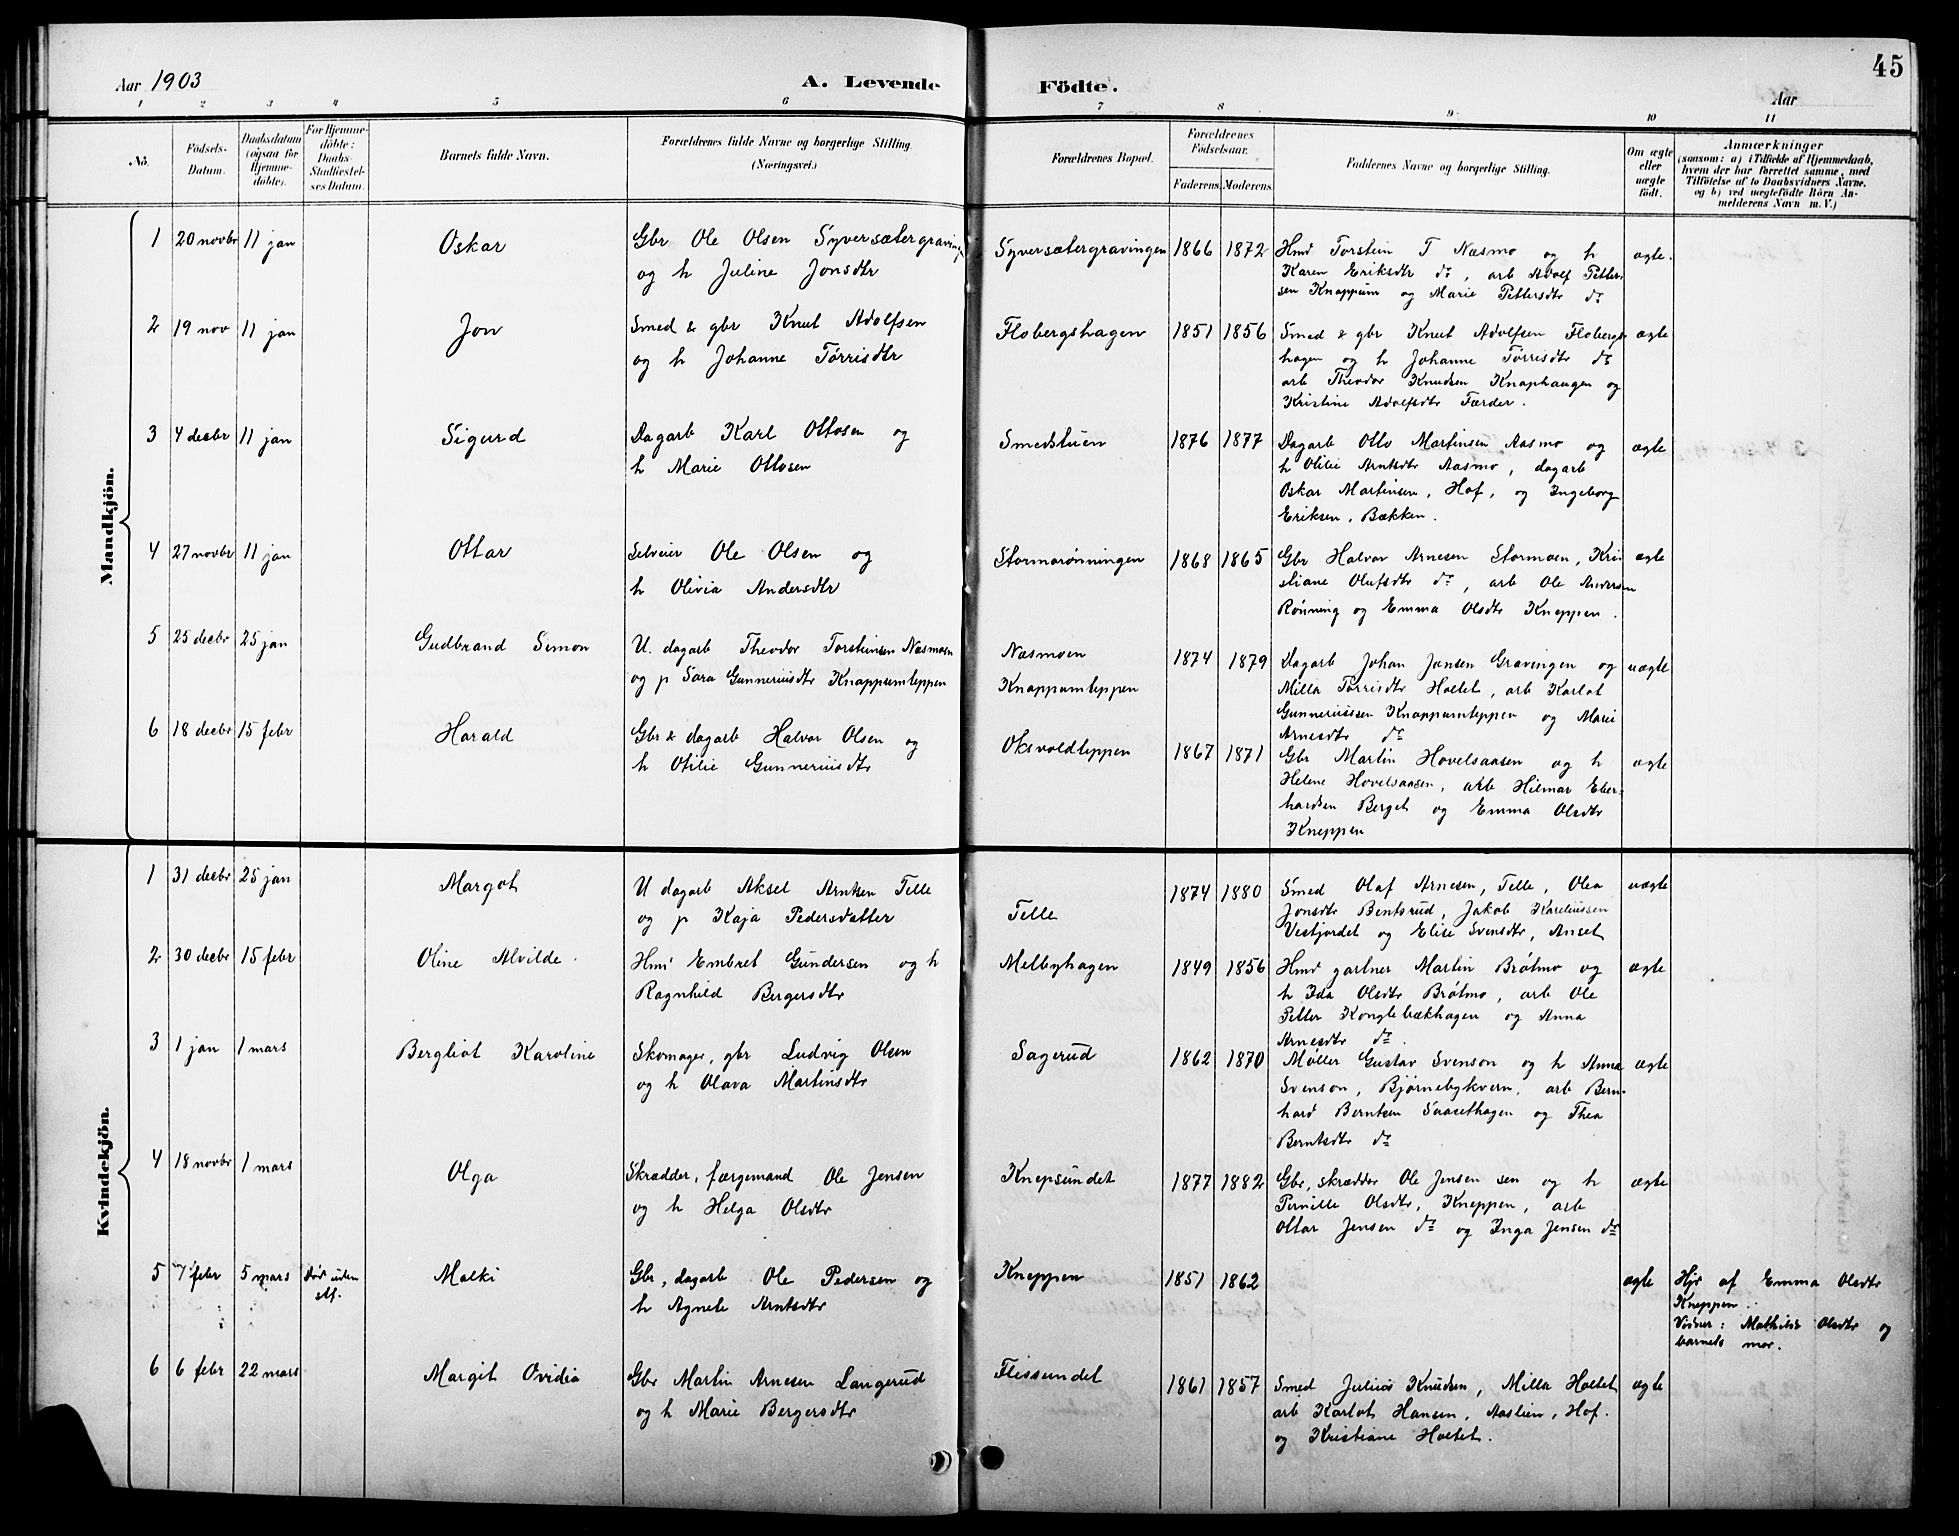 45
Aar 1903
A. Levende Födte.
Aar
1 2 3 4 5 6 7 8 9 10 11
No.
Födsels-
Datum.
Daabsdatum
(ogsaa for
Hjemme-
döbte).
For Hjemme-
döbte:
Daabs-
Stadfæstel-
ses Datum.
Barnets fulde Navn.
Forældrenes fulde Navne og borgerlige Stilling.
(Næringsvei.)
Forældrenes Bopæl.
Forældrenes
Födselsaar.
Faderens. Moderens.
Faddernes Navne og borgerlige Stilling.
Om ægte
eller
uægte
födt.
Anmærkninger
(saasom: a) i Tilfælde af Hjemmedaab,
hvem der har forrettet samme, med
Tilföielse af to Daabsvidners Navne.
og b) ved uægtefödte Börn An-
melderens Navn m. V.)
Mandkjön.
1 20 novbr 11 jan
Oskar
Gbr Ole Olsen Syversætergraving
og h Juline Jonsdtr
Syversætergravingen 1866 1872
Hmd Torstein T Næsmo og h
Karen Eriksdtr do, arb Adolf Petter-
sen Knappum og Marie Pettersdtr do
ægte.
2 19 nov 11 jan
Jon
Smed & gbr Knut Adolfsen
og h Johanne Tørrisdtr
Flobergshagen 1851 1856
Smed & gbr Knut Adolfsen Flobergs-
hagen og h Johanne Tørrisdtr do
arb Theodor Knudsen Knaphaugen og
Kristine Adolfsdtr Færder.
ægte
3 4 decbr 11 jan
Sigurd
Dagarb Karl Ottosen og
h Marie Ottosen
Smedstuen 1876 1877
Dagarb Otto Martinsen Aasmo og
h Otilie Arntsdtr Aasmo, dagarb
Oskar Martinsen, Hof, og Ingeborg
Eriksen, Bækken.
ægte
4 27 novbr 11 jan
Ottar
Selveier Ole Olsen og
h Olivia Andersdtr
Stormorønningen 1868 1865
Gbr Halvor Arnesen Stormoen, Kri-
stiane Olufsdtr do, arb Ole Andersen
Rønning og Emma Olsdtr Kneppen.
ægte
5 25 decbr 25 jan
Gudbrand Simon
U. dagarb Theodor Torstensen Næsmoen
og p Sara Gunneriusdtr Knappumteppen
Næsmoen
Knappumteppen
1874 1879
Dagarb Johan Jansen Gravingen og
Milla Tørrisdtr Holtet, arb Karlot
Gunneriussen Knappumteppen og Marie
Arnesdtr do
uægte
6 18 decbr 15 febr
Harald
Gbr & dagarb Halvor Olsen og
h Otilie Gunneriusdtr
Oksvoldteppen 1867 1871
Gbr Martin Hovelsaasen og h
Helene Hovelsaasen, arb Hilmar Eber-
hardsen Berget og Emma Olsdtr
Kneppen
ægte
Kvindekjön.
1 31 decbr 25 jan
Margot
U dagarb Aksel Arntsen Telle
og p Kaja Pedersdatter
Telle
1874 1880
Smed Olaf Arnesen, Telle, Olea
Jonsdtr Bentsrud, Jakob Kareliussen
Vestjordet og Elise Svensdtr, Anset
uægte
2 30 decbr 15 febr
Oline Alvilde
Hmd Embret Gundersen og h
Ragnhild Bergersdtr
Melbyhagen 1849 1856
Hmd gartner Martin Brøtmo og
h Ida Olsdtr Brøtmo, arb Ole
Petter Konglebækhagen og Anna
Arnesdtr do.
ægte
3 1 jan 1 mars
Bergliot Karoline
Skomager, gbr Ludvig Olsen
og h Olava Martinsdtr
Sagerud 1862 1870
Møller Gustav Svenson og h Anna
Svenson, Bjørnebykvern, arb Bern-
hard Berntsen Snasethagen og Thea
Berntsdtr do
ægte
4 18 novbr 1 mars
Olga
Skrædder, færgemand Ole Jensen
og h Helga Olsdtr
Knepsundet 1877 1882
Gbr, skrædder Ole Jensen sen og h
Pernille Olsdtr, Kneppen, arb
Ottar Jensen do og Inga Jensen do
ægte
5 7 febr 5 mars Død uden
st.
Malki
Gbr, dagarb Ole Pedersen og
h Agnete Arntsdtr
Kneppen 1851 1862
ægte
Hjd af Emma Olsdtr
Kneppen.
Vidner: Mathilde Olsdtr og
barnets mor.
6 6 febr 22 mars
Margit Ovidia
Gbr Martin Arnesen Langerud
og h Marie Bergersdtr
Flissundet 1861 1857
Smed Julius Knudsen, Milla Holtet
arb Karlot Hansen, Aaslien, Hof.
og Kristiane Holtet.
ægte